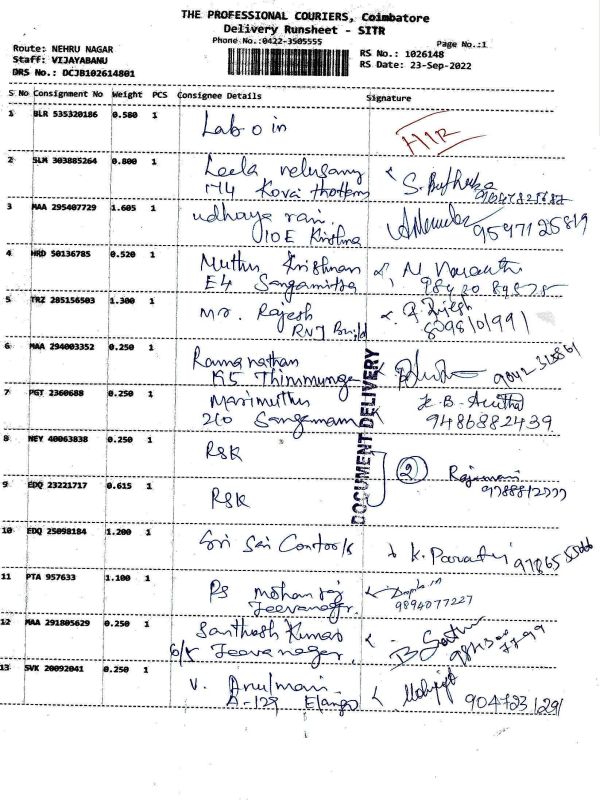 THE PROFESSIONAL COURIERS, Coimbatore
Delivery Runsheet - SITR
Phone No.:0422-3505555
Page No.:1
Route: NEHRU NAGAR
Staff: VIJAYABANU
DRS No.: DCJB102614801
RS No.: 1026148
RS Date: 23-Sep-2022
S No Consignment No Weight PCS Consignee Details Signature
1 BLR 535320186 0.580 1 Lab o in
2 SLM 303885264 0.800 1 Leela velusamy
174 Kovai thottam S.
3 MAA 295407729 1.605 1 udhaya rani.
U10E Krishna 9597125819
4 HRD 50136785 0.520 1 Muthu Krishnan
E4 Sangamitra
5 TRZ 285156503 1.300 1 Mr. Rajesh
RNJ Build 8098101991
6 MAA 294003352 0.250 1 Ramanathan
7 PGT 2360688 0.250 1 Marimuthu
210 Sangamam 9486882439
DOCUMENT DELIVERY
8 NEY 40063838 0.250 1 RSK
2
9 EDQ 23221717 0.615 1 RSK
10 EDQ 25098184 1.200 1 Sri Sai K.
11 PTA 957633 1.100 1 Ps Mohanraj
Jeevanagar. 9894077227
12 MAA 291805629 0.250 1 Santhosh Kumar
Jeevanagar.
13 SVK 20092041 0.250 1 V. Arulmani.
A-129 Elango 9047231291